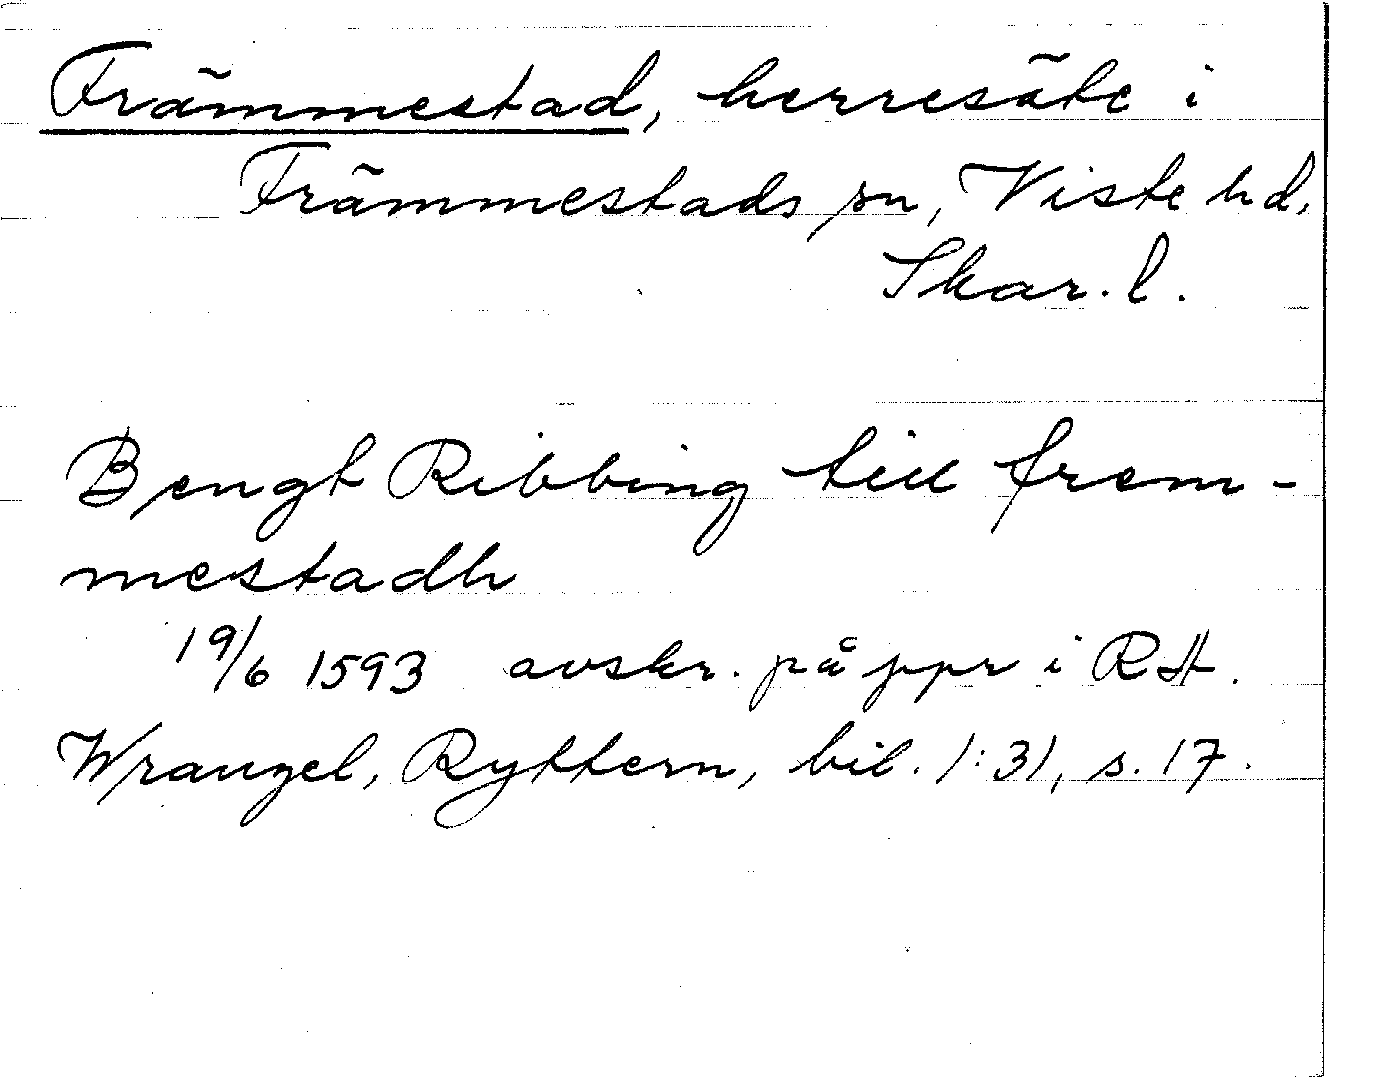 Främmestad, herresäte i
Främmestads sn, Viste hd,
Skar. l.
Bengt Ribbing till frem-
mestadh
19/6 1593 avskr. på ppr i RH.
Wrangel, Ryttern, bil. 1:31, s. 17.